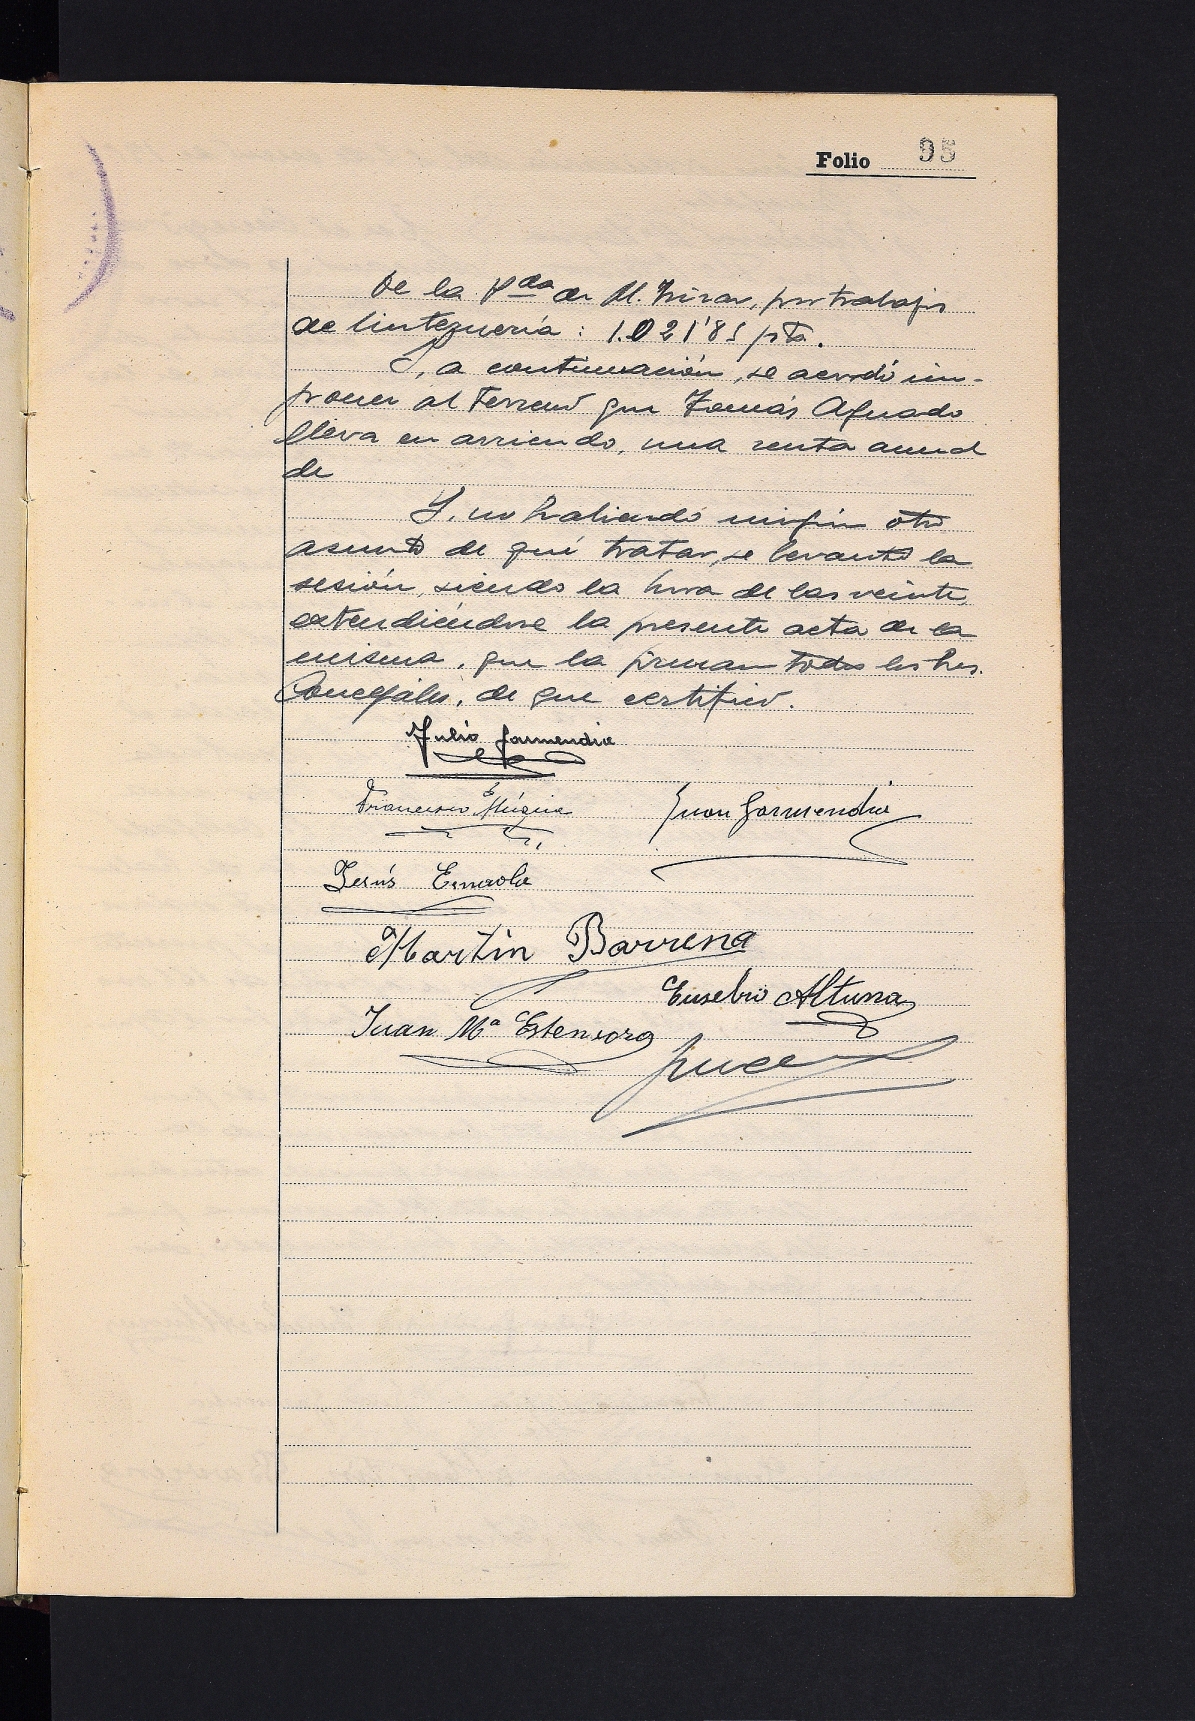 Folio 95
De la Vda de M. , por trabajos
de linternería: 1.021'85 pts.
Y, a continuación, se acordó im-
poner al terreno que Tomás Aguado
lleva en arriendo, una renta anual
de
Y, no habiendo ningún otro
asunto de qué tratar, se levantó la
sesión, siendo la hora de las veinte,
extendiéndose la presente acta de la
misma, que la firman todos los Sres.
Concejales, de que certifico.
Julio Garmendia
Francisco Múgica
Juan Garmendia
Jesús Esnaola
Martin Barrena
Eusebio Altuna
Juan Mª Estensoro